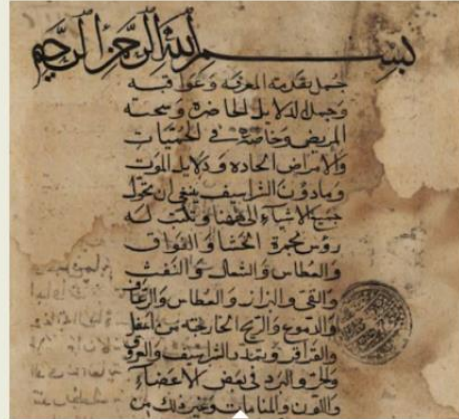 بسم الله الرحمن الرحيم
جمل تقدمة المعرفة وعواقبه
وجمل لدلايل الحاضرة وسحنة
المريض وخاصة في الحميات
والامراض الحادة ودلايل الموت
وما دون الشراسيف ينبغي ان تحول
جميع الاشياء
رؤس والفواق
والعطاس والسعال والنفث
والقيء والبراز والعطاس والرعاف
والدموع والريح الخارجة من اسفل
والقراقر وتمدد الشراسيف والعرق
والحر والبرد في بعض الاعضاء
والدرن والمنامات وغير ذلك من